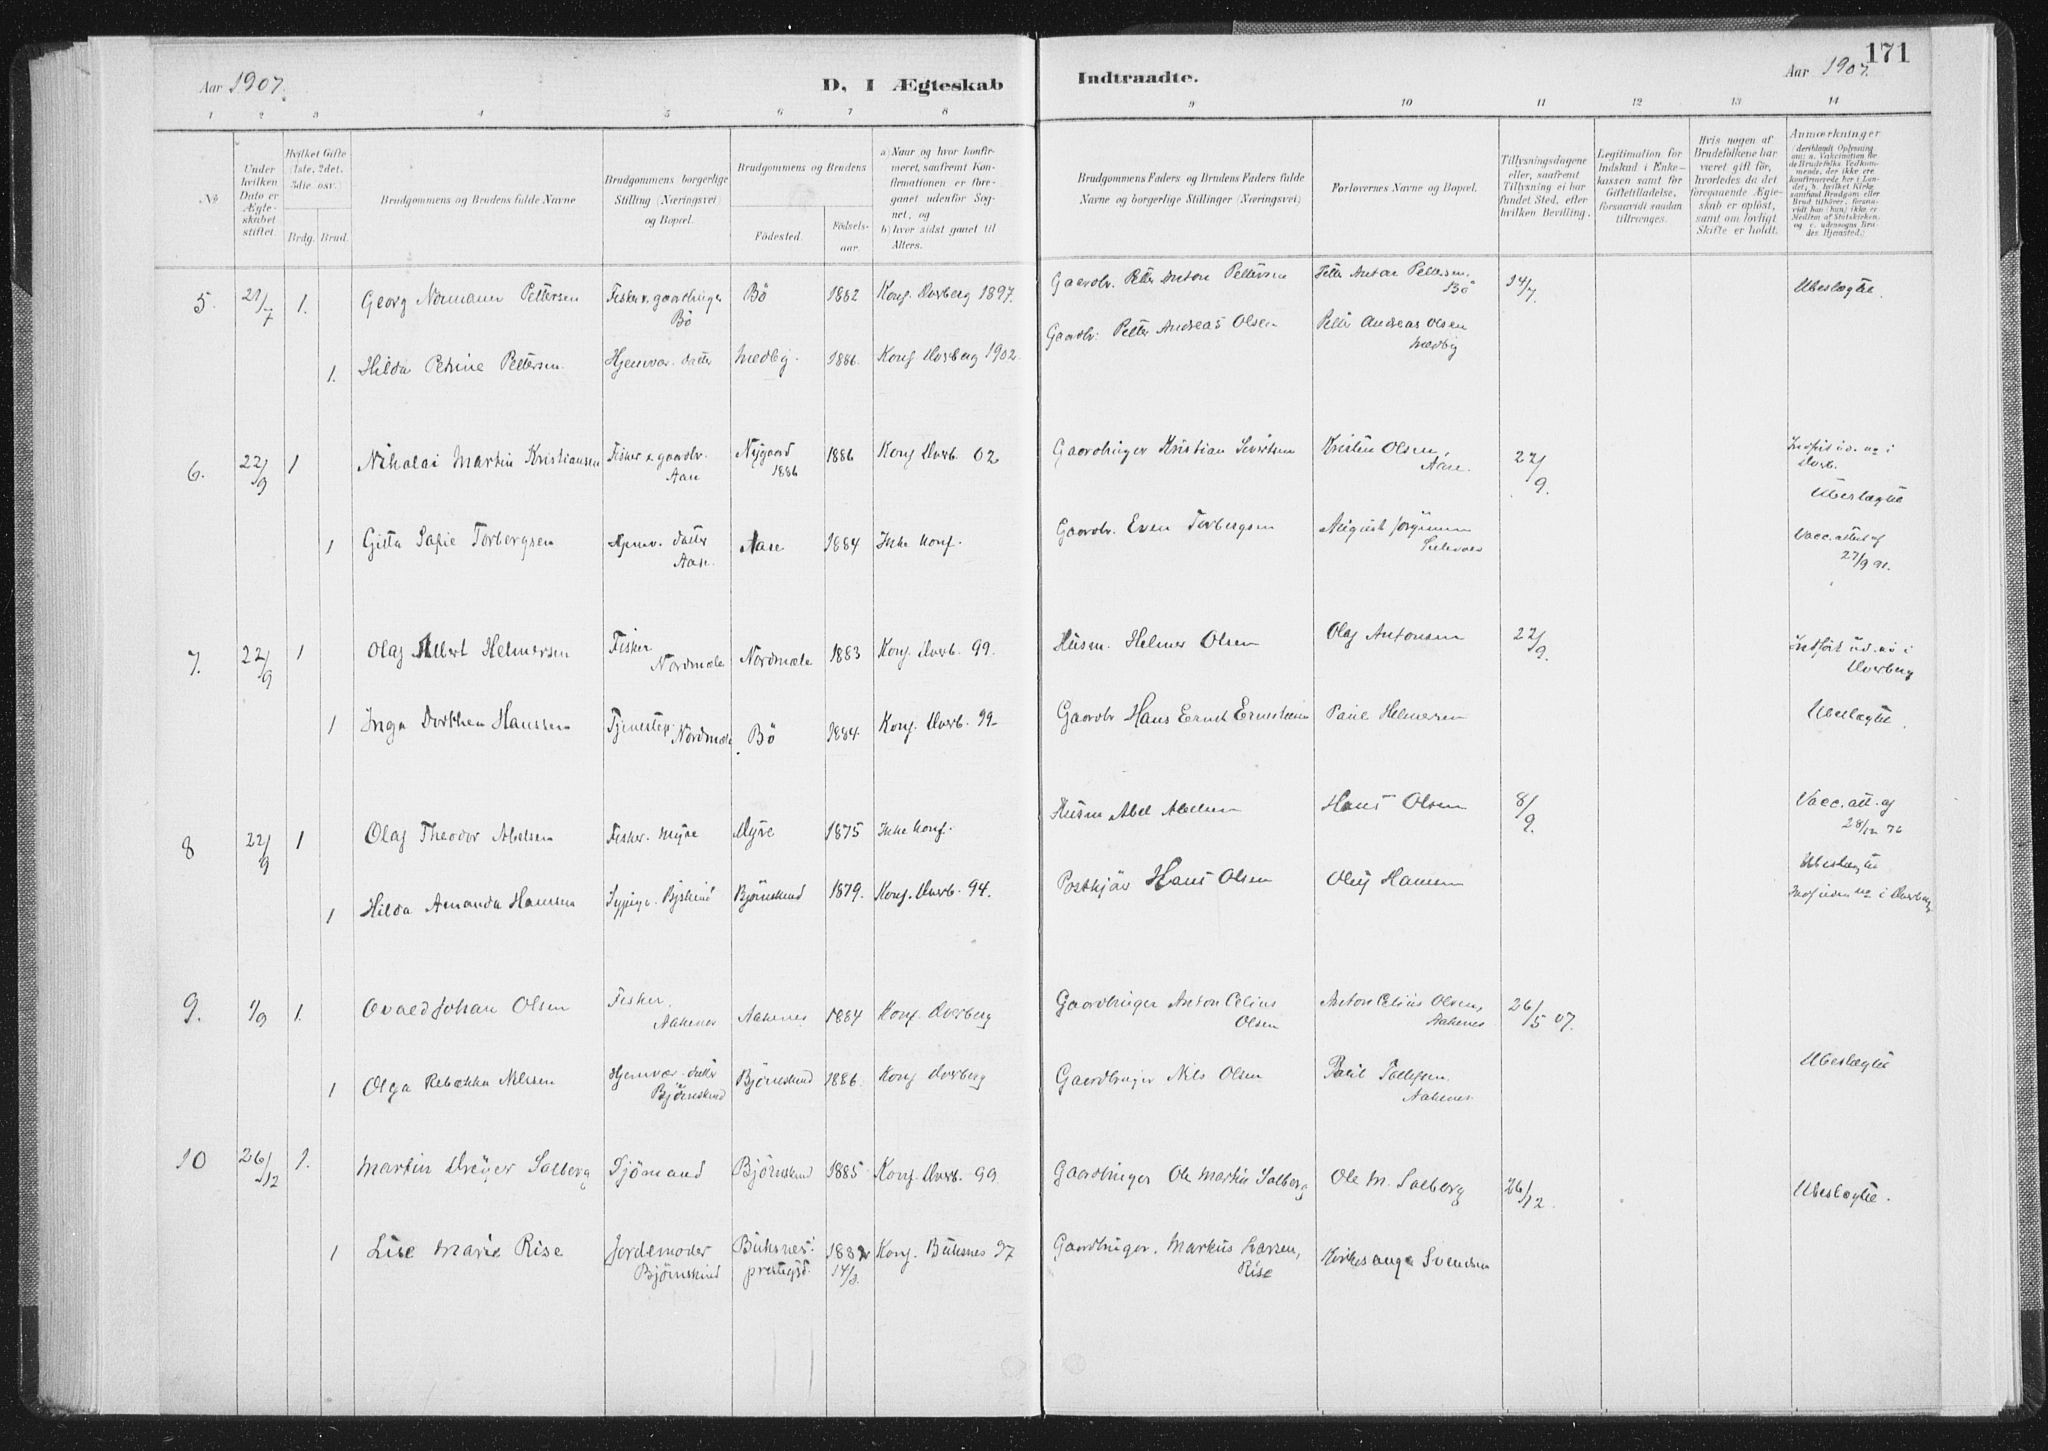 171
Aar 1907.
D. I Ægteskab
Indtraadte.
Aar 1907.
1 2 3 4 5 6 7 8 9 10 11 12 13 14
№
Under hvilken Dato er Ægteskabet stiftet.
Hvilket Gifte (1ste, 2det, 3die osv.)
Brdg. Brud.
Brudgommens og Brudens fulde Navne
Brudgommens borgerlige Stilling (Næringsvei) og Bopæl.
Brudgommens og Brudens
Fødested.
Fødselsaar.
a) Naar og hvor konfirmeret, saafremt Konfirmationen er foregaaet udenfor Sognet, og
b) hvor sidst gaaet til Alters.
Brudgommens Faders og Brudens Faders fulde Navne og borgerlige Stillinger (Næringsvei)
Forlovernes Navne og Bopæl.
Tillysningsdagene eller, saafremt Tillysning ei har fundet Sted, efter hvilken Bevilling.
Legitimation for Indskud i Enkekassen samt for Giftetilladelse, forsaavidt saadan tiltrænges.
Hvis nogen af Brudefolkene har været gift før, hvorledes da det foregaaende Ægteskab er opløst, samt om lovligt Skifte er holdt.
Anmærkninger
5. 21/7 1. Georg Normann Pettersen Fisker x gaardbruger Bö Bö 1882 Konf. Dverberg 1897. Gaardbr. Petter Anton Pettersen Petter Anton Pettersen. Bö 14/7 Ubeslægtet.
1. Hilda Petrine Pettersen. Hjemvær. datter Medby. 1886. Konf Dverberg 1902. Gaardbr. Petter Andreas Olsen Petter Andreas Olsen Medby
6. 22/9 1 Nikolai Martin Kristiansen Fisker x gaardbr. Aase Nygaard 1886 1886 Konf Dverb. 02 Gaardbruger Kristian Sivertsen Kristen Olsen, Aase. 22/9. Indført ud. no i Dverb. Ubeslægtet
1 Gitta Sofie Torbergsen Hjemv. datter Aase. Aase 1884 Ikke konf. Gaardbr. Even Torbergsen August Jörginsen Vacc. attest af 27/9 91.
7. 22/9 1 Olaf Albert Helmersen Fisker Nordmele Nordmele 1883 Konf. Dverb. 99. Husm. Helmer Olsen Olaf Antonsen 22/9. Indført ud. no i Dverberg
1 Inga Dorthea Hanssen Tjenestep. Nordmele Bö 1884. Konf. Dverb. 99- Gaardbr Hans Ernst Ernstsen Paul Helmersen Ubeslægtet.
8 22/9 1 Olaf Theodor Abelsen Fisker. Myre Myre 1875 Ikke konf. Husm Abel Abelsen Hans Olsen 8/9. Vacc. att. af 28/12 76
1 Hilda Amanda Hansen Sypige. Bjørnskind 1879. Konf. Dverb. 94. Postkjør Hans Olsen Oluf Hansen Ubeslægtet Indf uden no i Dverberg
9. 1/9 1. Ovald Johan Olsen Fisker, Aakenes Aakenes 1884 Konf. Dverberg Gaardbruger Anton Celius Olsen Anton Celius Olsen, Aakenes 26/5 07.
1 Olga Rebekka Nilssen Hjemvær. datter Bjørnskind Bjørnskind 1886. Konf Dverberg Gaardbruger Nils Olsen Paul Tollefsen. Aakenes Ubeslægtet
10 26/12 1. Martin Dreyer Solberg Sjömand Bjørnskind 1885 Konf. Dverb. 99 Gaardbruger Ole Martin Solberg Ole M. Solberg 26/12. Ubeslægtet.
1 Lise Marie Rise Jordemoder Bjørnskind Buksnes' prestegjd. 1882 14/3. Konf. Buksnes 97 Gaardbruger. Markus Larsen, Rise Kirkesanger Svendsen